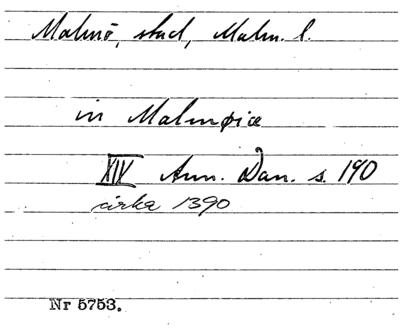 Malmö, stad, Malm. l.
in Malmøiæ
XIV Ann. Dan. s. 190
cirka 1390
Nr 5753.